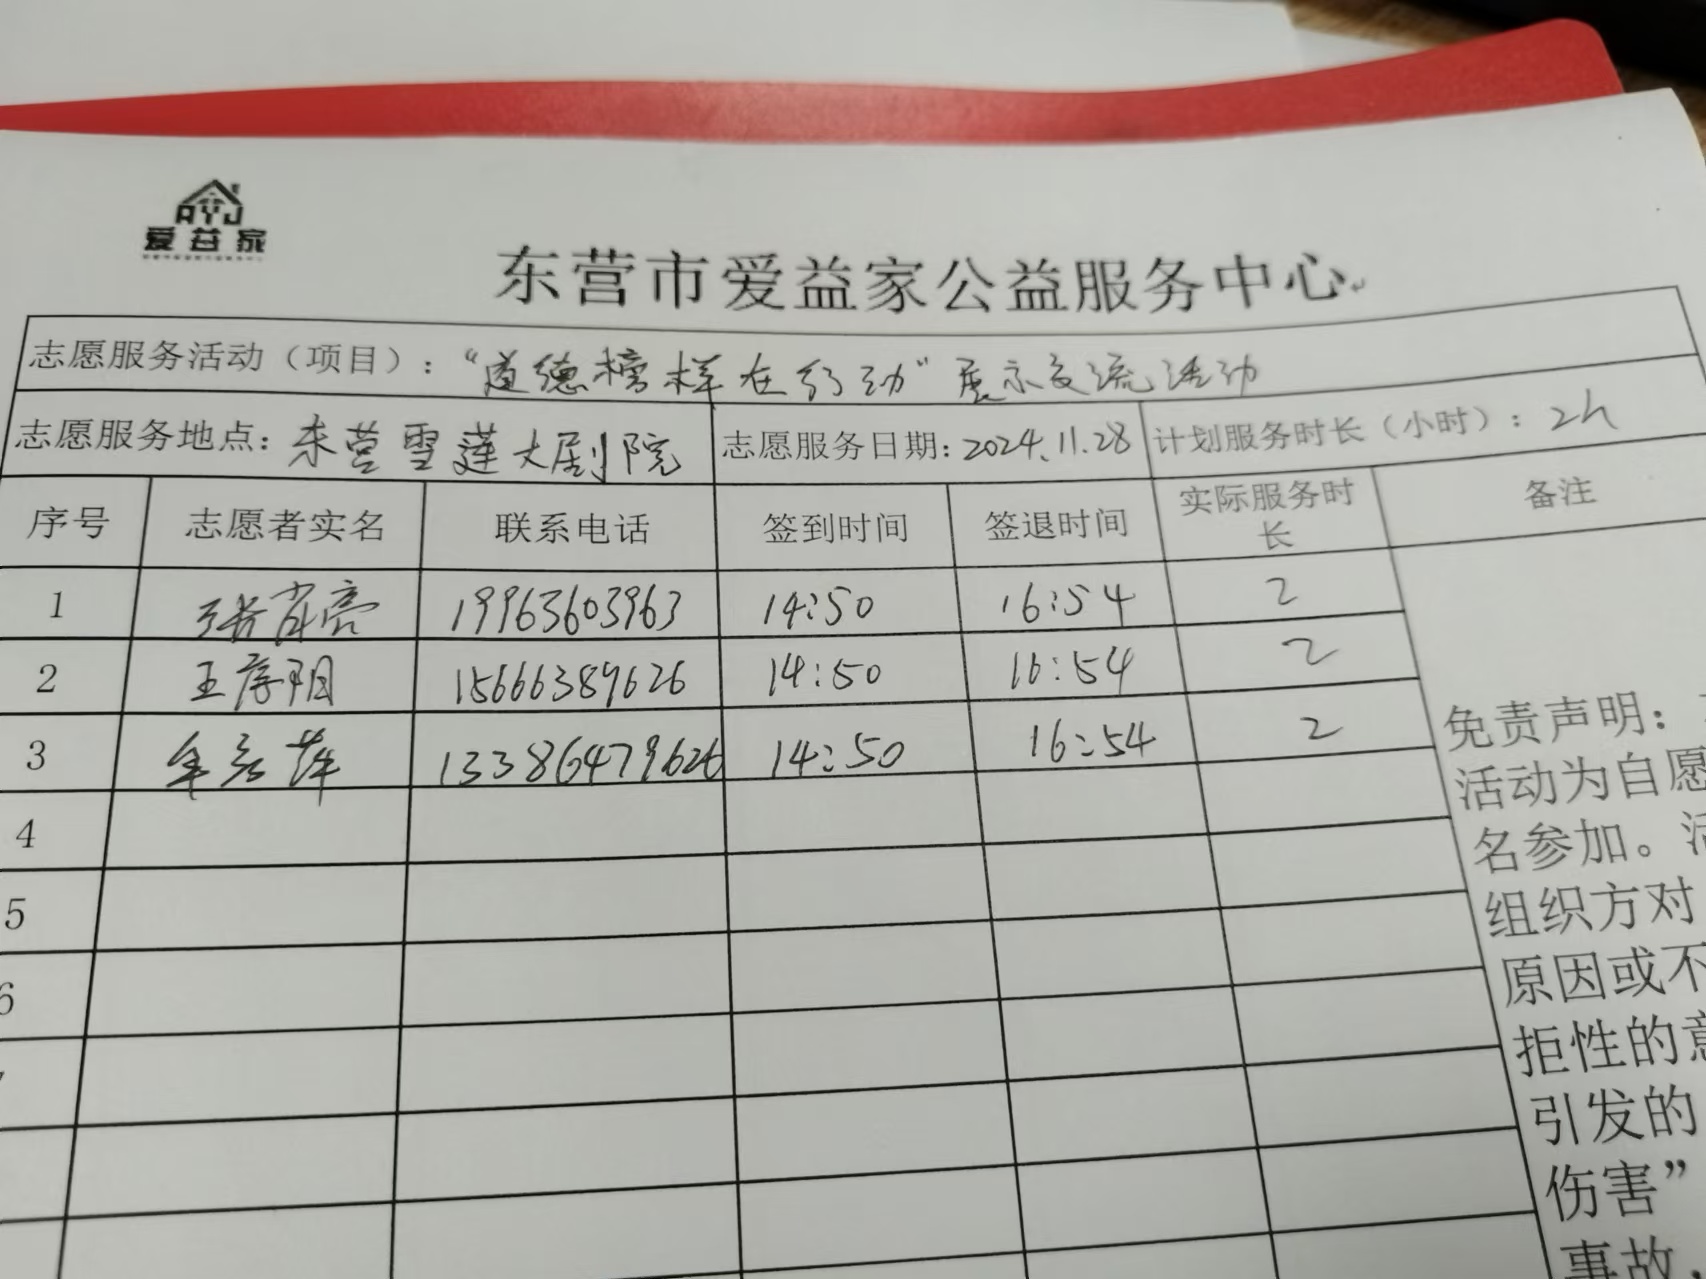 AYJ
爱益家
东营市爱益家公益服务中心
志愿服务活动（项目）：“道德榜样在行动”展示交流活动
志愿服务地点：东营雪莲大剧院 志愿服务日期：2024.11.28 计划服务时长（小时）：2h
序号 志愿者实名 联系电话 签到时间 签退时间 实际服务时长 备注
1 张肖亮 19963603963 14:50 16:54 2
2 王序阳 15666389626 14:50 16:54 2
3 13386479626 14:50 16:54 2
4
5
6
免责声明：
活动为自愿
名参加。活
组织方对
原因或不
拒性的意
引发的
伤害”
事故，